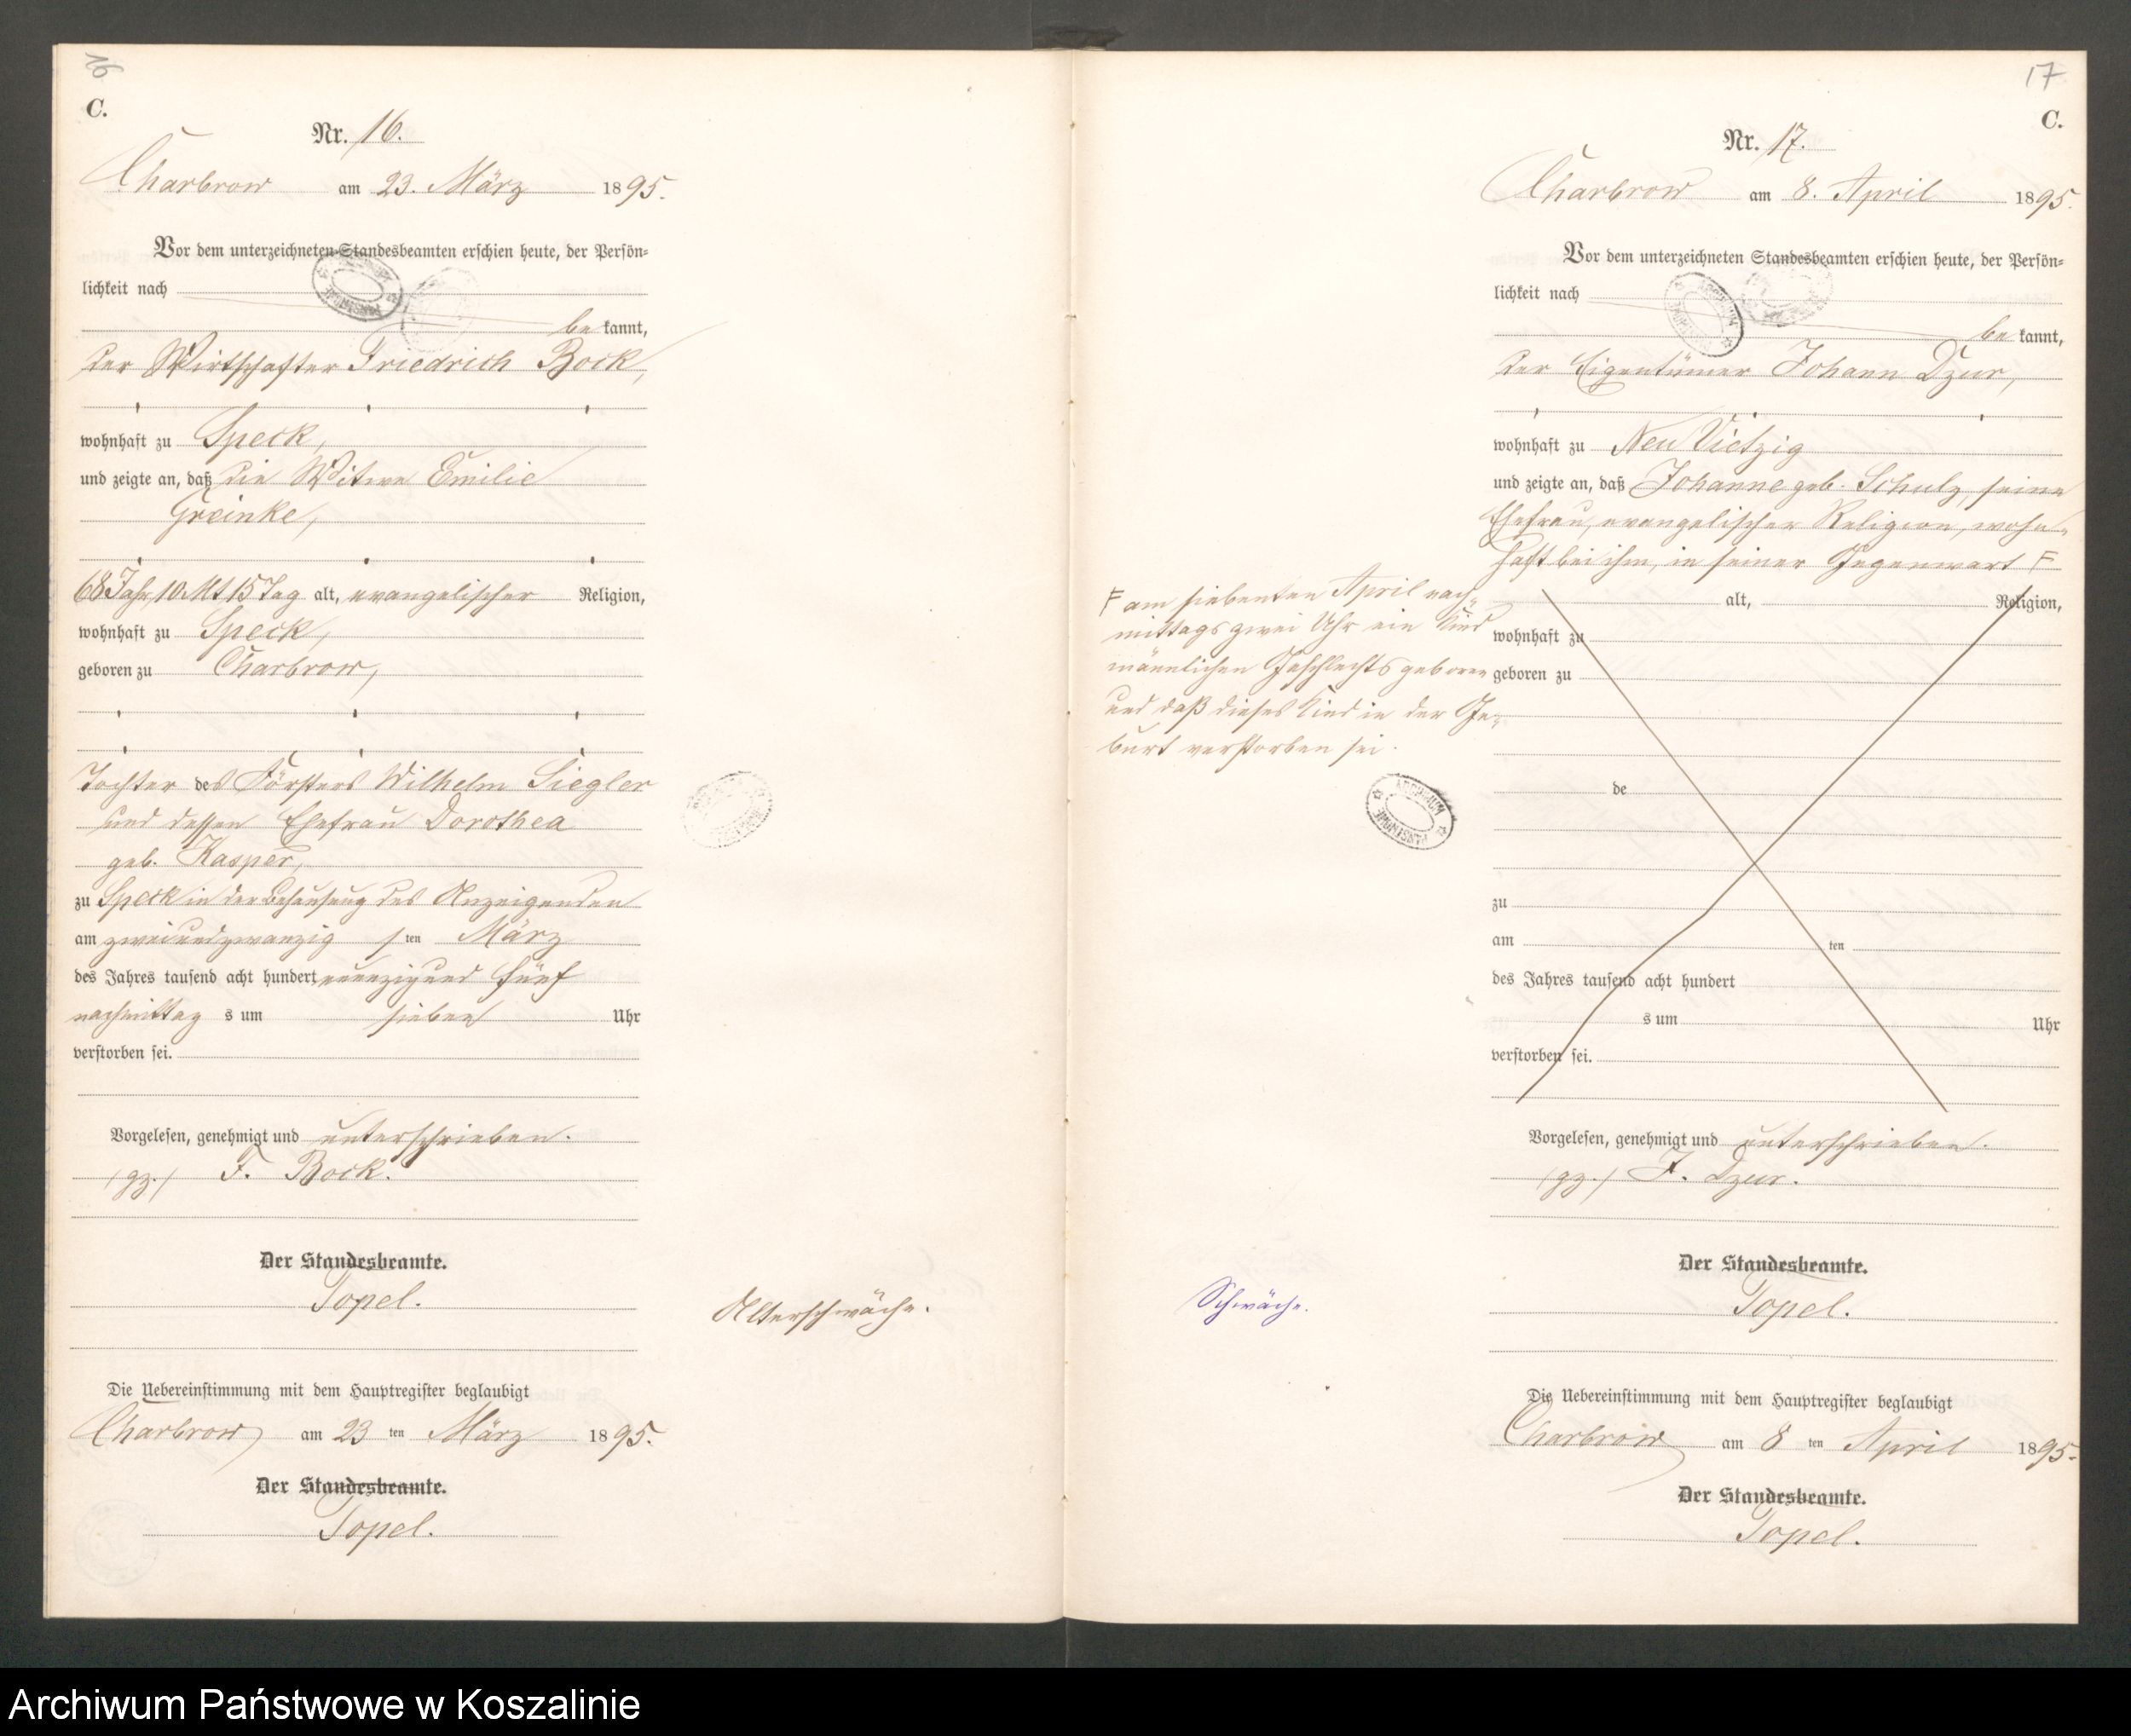 16
C.
Nr. 16.
Charbrow am 23. März 1895.
Vor dem unterzeichneten Standesbeamten erschien heute, der Persön-
lichkeit nach
be kannt,
der Wirtschafter Friedrich Bock,
wohnhaft zu Speck,
und zeigte an, daß die Witwe Emilie
Greinke,
68 Jahr, 10 Mt 15 Tag alt, evangelischer Religion,
wohnhaft zu Speck,
geboren zu Charbrow,
Tochter des Försters Wilhelm Siegler
und dessen Ehefrau Dorothea
geb. Kasper,
zu Speck in der Behausung des Anzeigenden
am zweiundzwanzig sten März
des Jahres tausend acht hundert neunzig und fünf
nachmittag s um sieben Uhr
verstorben sei.
Vorgelesen, genehmigt und unterschrieben.
(gz.) F. Bock.
Der Standesbeamte.
Topel.
Altersschwäche.
Die Uebereinstimmung mit dem Hauptregister beglaubigt
Charbrow am 23 ten März 1895.
Der Standesbeamte.
Topel.
17
C.
Nr. 17.
Charbrow am 8. April 1895.
Vor dem unterzeichneten Standesbeamten erschien heute, der Persön-
lichkeit nach
be kannt,
der Eigentümer Johann Dzur,
wohnhaft zu Neu Vietzig
und zeigte an, daß Johanne geb. Schulz, seine
Ehefrau, evangelischer Religion, wohn-
haft bei ihm, in seiner Gegenwart F
F am siebenten April nach-
mittags zwei Uhr ein Kind
männlichen Geschlechts geboren
und daß dieses Kind in der Ge-
burt verstorben sei.
alt, Religion,
wohnhaft zu
geboren zu
de
zu
am ten
des Jahres tausend acht hundert
s um Uhr
verstorben sei.
Vorgelesen, genehmigt und unterschrieben.
(gz.) J. Dzur.
Der Standesbeamte.
Topel.
Schwäche.
Die Uebereinstimmung mit dem Hauptregister beglaubigt
Charbrow am 8 ten April 1895.
Der Standesbeamte.
Topel.
Archiwum Państwowe w Koszalinie